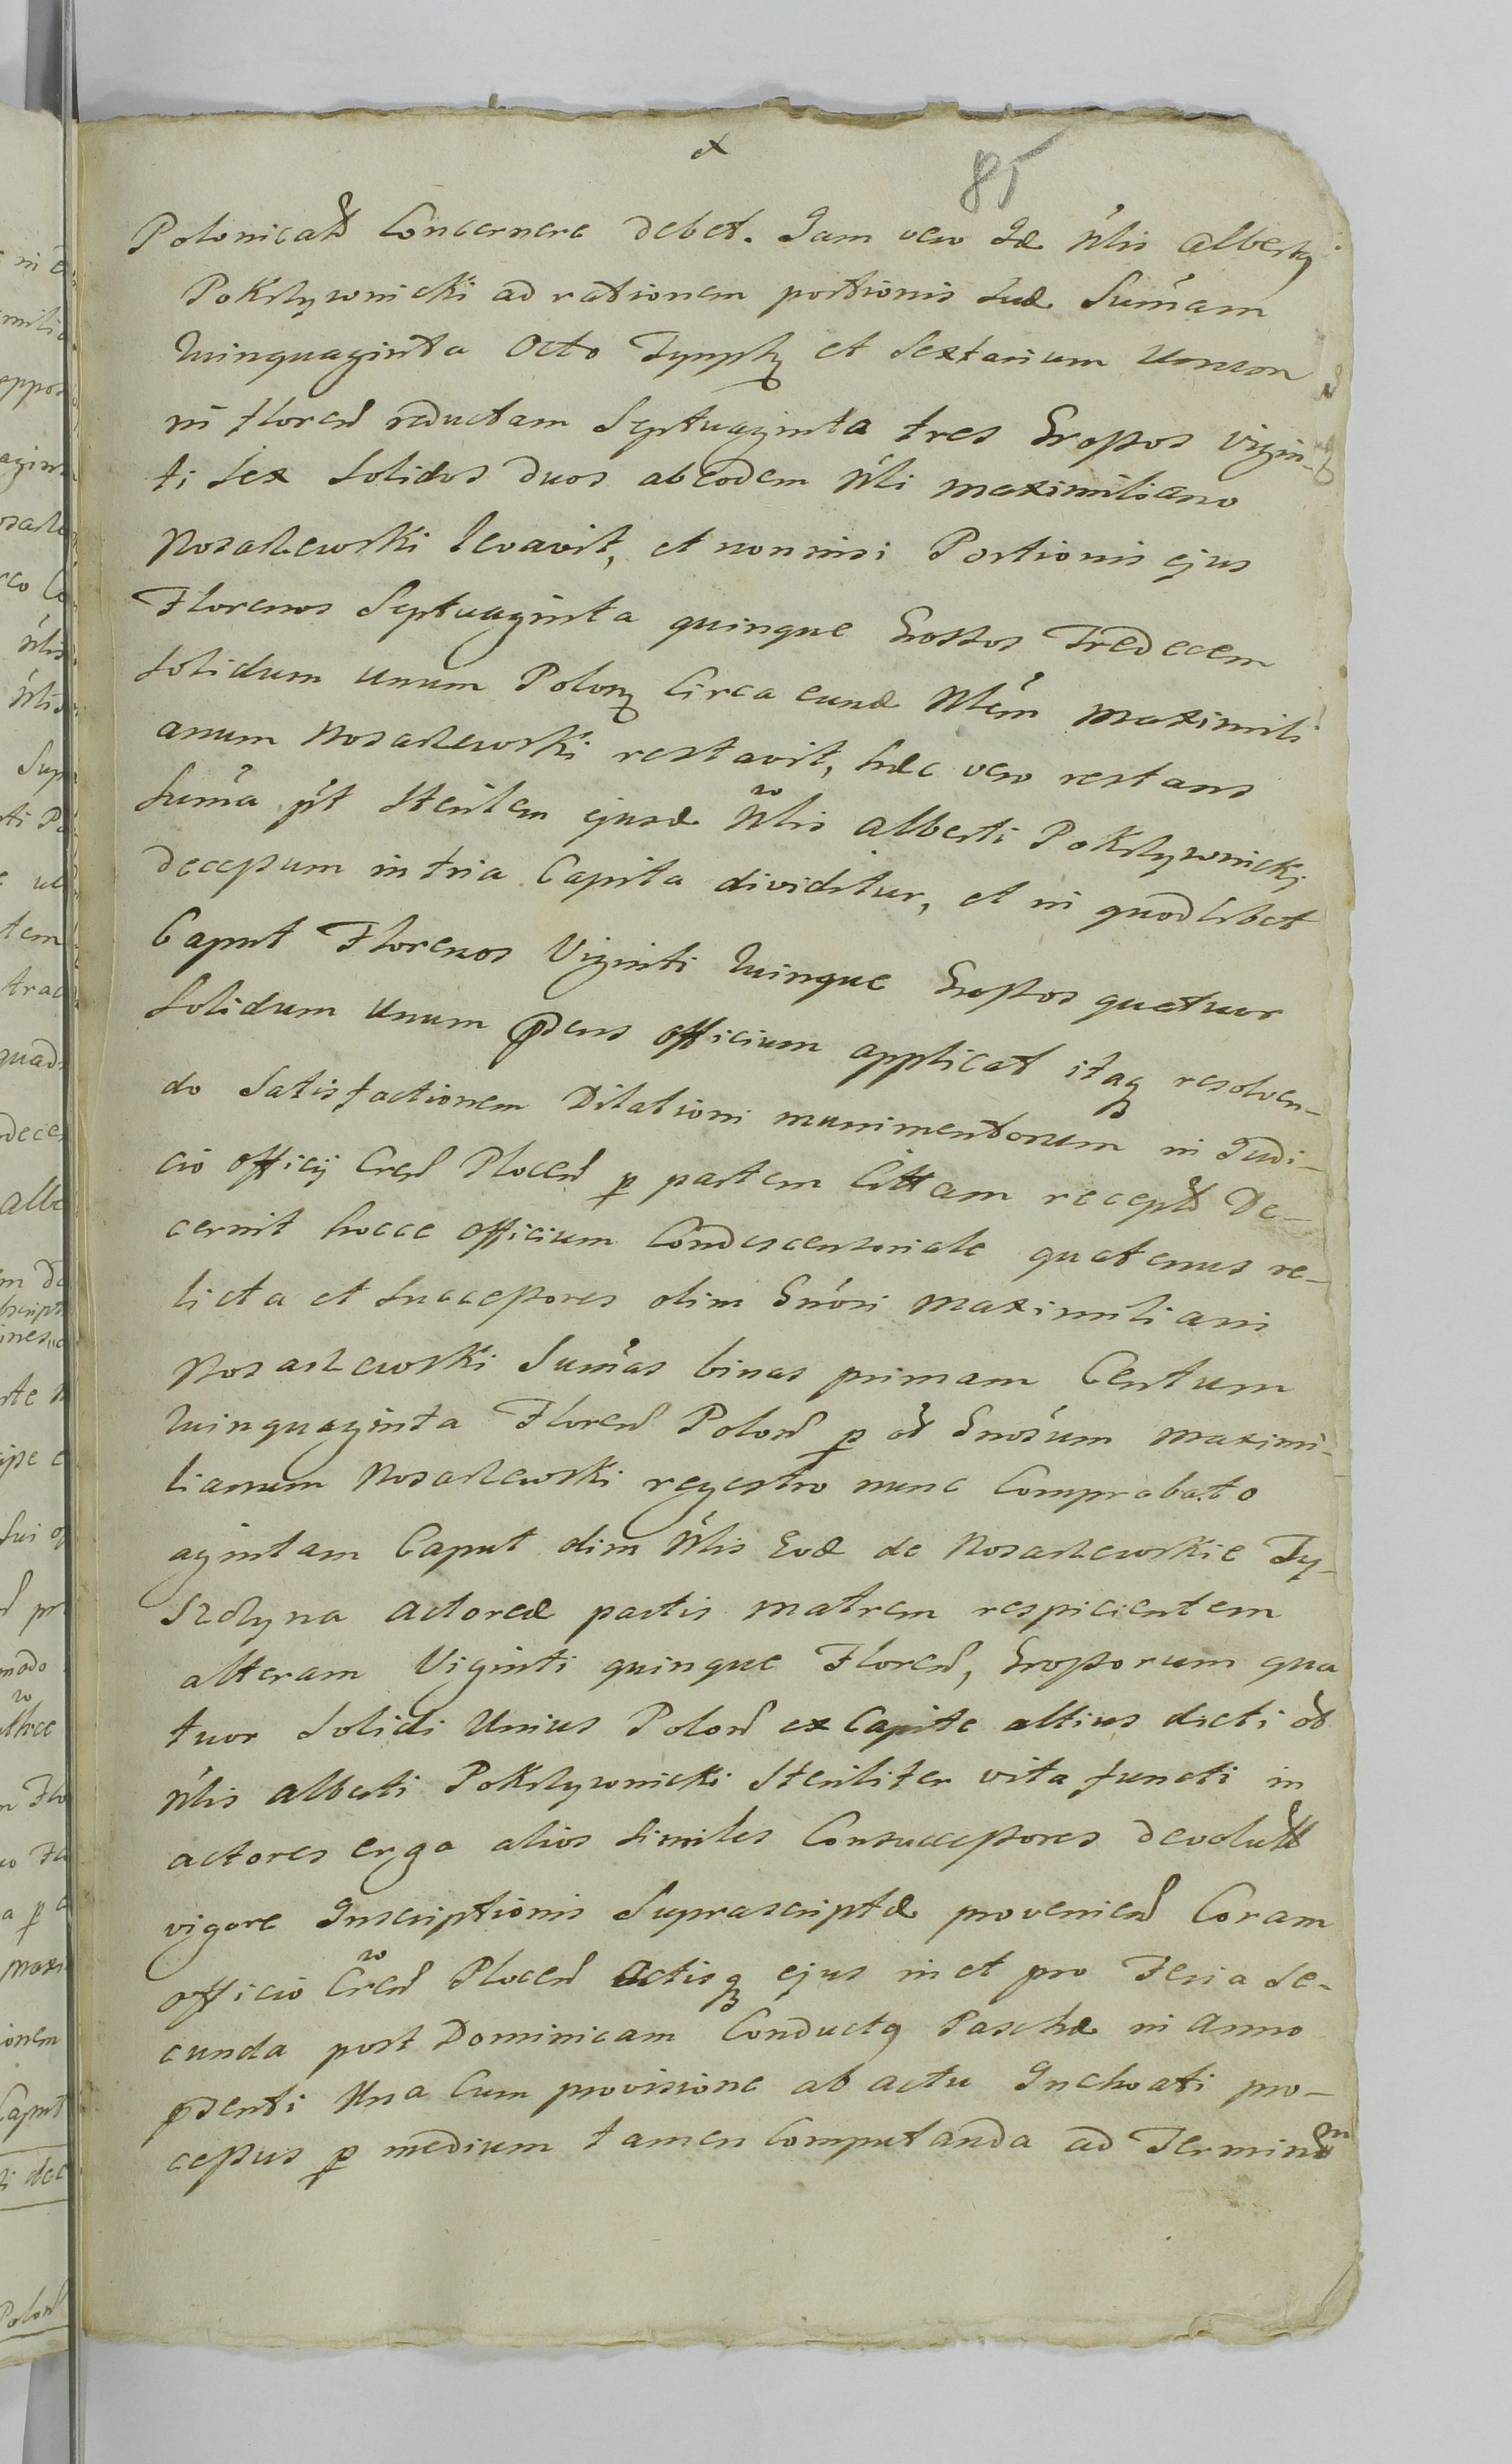 85
Polonicał Concernere debet. Jam vero Id Nlis Alberty
Pokrzywnicki ad rationem portionis suæ Sum̃am
Quinquaginta Octo Tynph et Sextarium Unum
in Floreń reductam Septuaginta tres Grossos Vigin-
ti Sex Solidos duos ab eodem Nli Maximiliano
Nosarzewski levavit, et non nisi Portionis ejus
Florenos Septuaginta quinque Grossos Tredecem
Solidum Unum Polon Circa eund Nlem Maximili
anum Nosarzewski restavit, hæc vero restans
Sum̃a pt sterilem ejusd Nlis Alberti Pokrzywnicki
decessum in tria Capita dividitur, et in quodlibet
Caput Florenos Viginti Quinque Grossos quatuor
Solidum Unum Pdens Officium applicat itaq resolven-
do Satisfactionem Dilationi munimentorum in Judi-
cio Officij Creń Ploceń p partem Citłam recepł De-
cernit hocce Officium Condescensoriale quatenus re-
licta et Successores olim Gnosi Maximiliani
Nosarzewski Sum̃as binas primam Centum
Quinquaginta Floreń Poloń p oł Gnosum Maximi-
lianum Nosarzewski regestro nunc Comprobato
agintam Caput olim Nlis Evæ de Nosarzewskie Ty-
szczyna Actoreæ partis matrem respicientem
alteram Viginti quinque Floreń, Grossorum qua
tuor Solidi Unius Poloń ex Capite altius dicti oł
Nlis Alberti Pokrzywnicki Steriliter vita functi in
actores erga alios similes Consuccessores devolutł
vigore Inscriptionis Suprascriptæ provenień Coram
Officio Creń Ploceń Actisq ejus in et pro Feria Se-
cunda post Dominicam Conductg Paschæ in Anno
pdenti Una Cum provisione ab actu Inchoati pro-
cessus p medium tamen Computanda ad Terminm